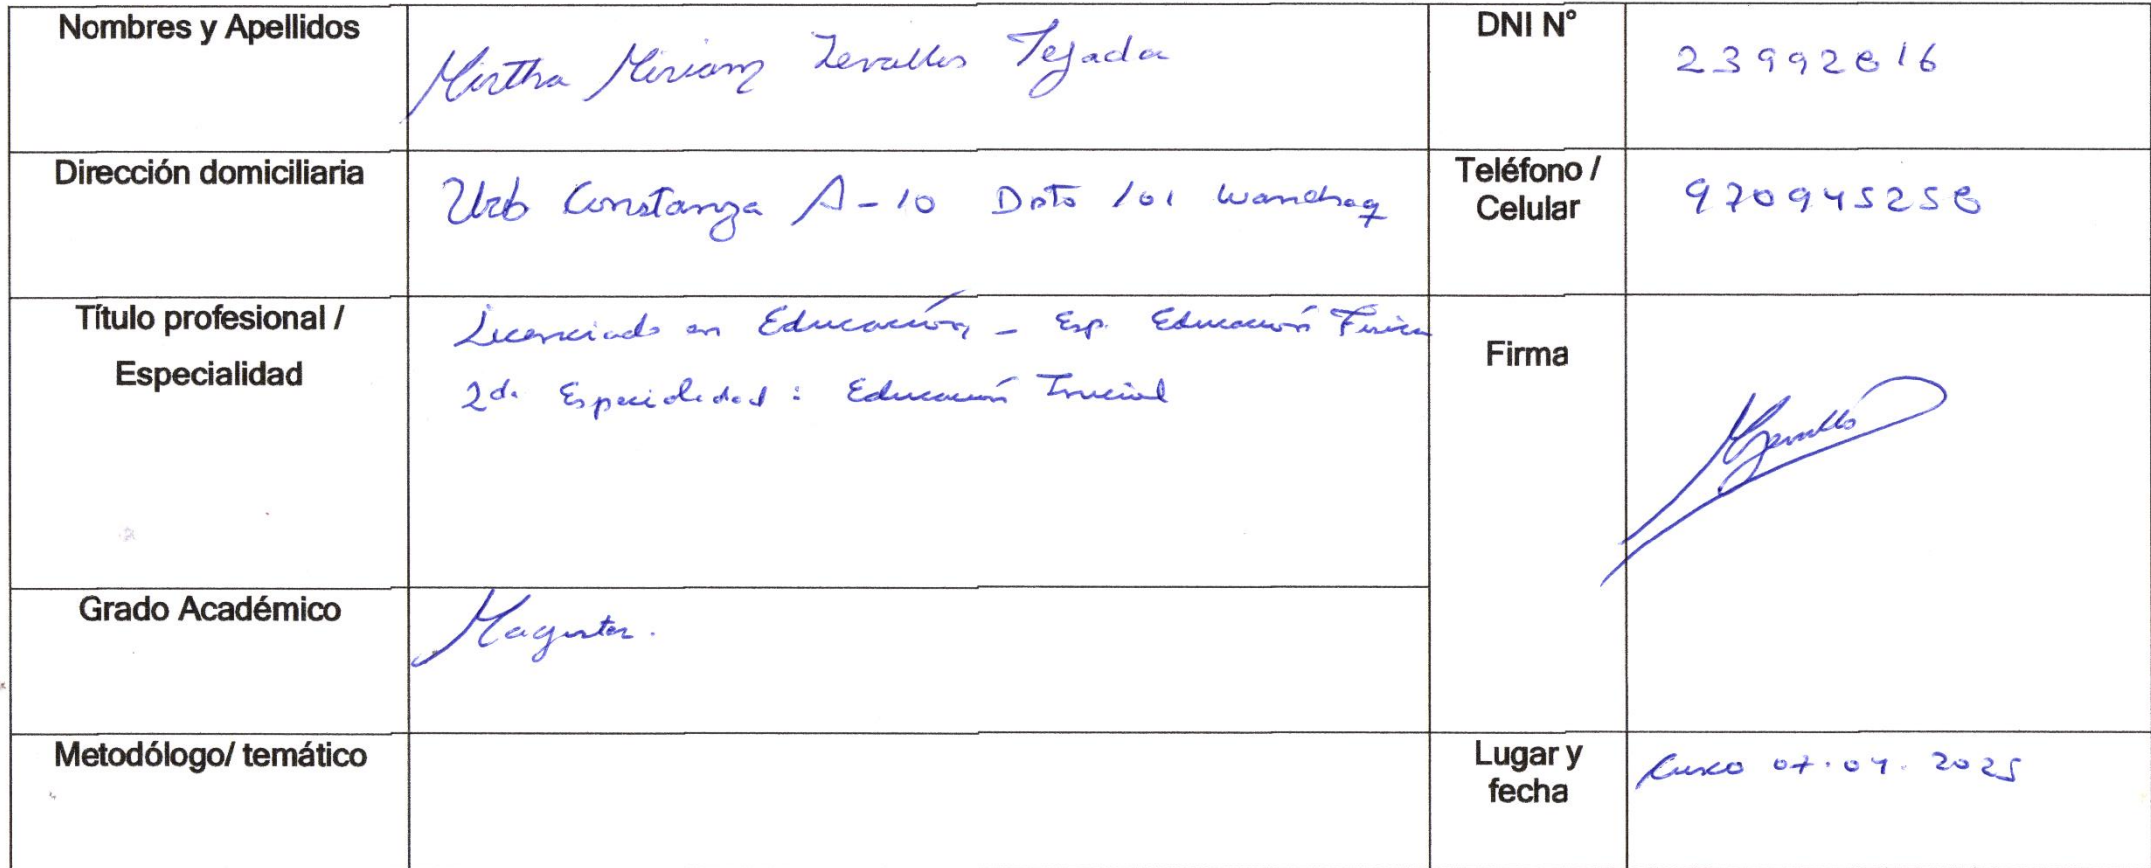 Nombres y Apellidos
Mirtha Miriam Zevallos Tejada
DNI N°
23992816
Dirección domiciliaria
Urb Constanza A-10 Dpto 101 Wanchaq
Teléfono /
Celular
970945258
Título profesional /
Especialidad
Licenciado en Educación - Esp. Educación Física
2da Especialidad: Educación Inicial
Firma
MZevallos
Grado Académico
Magister.
Metodólogo/ temático
Lugar y
fecha
Cusco 07.04.2025